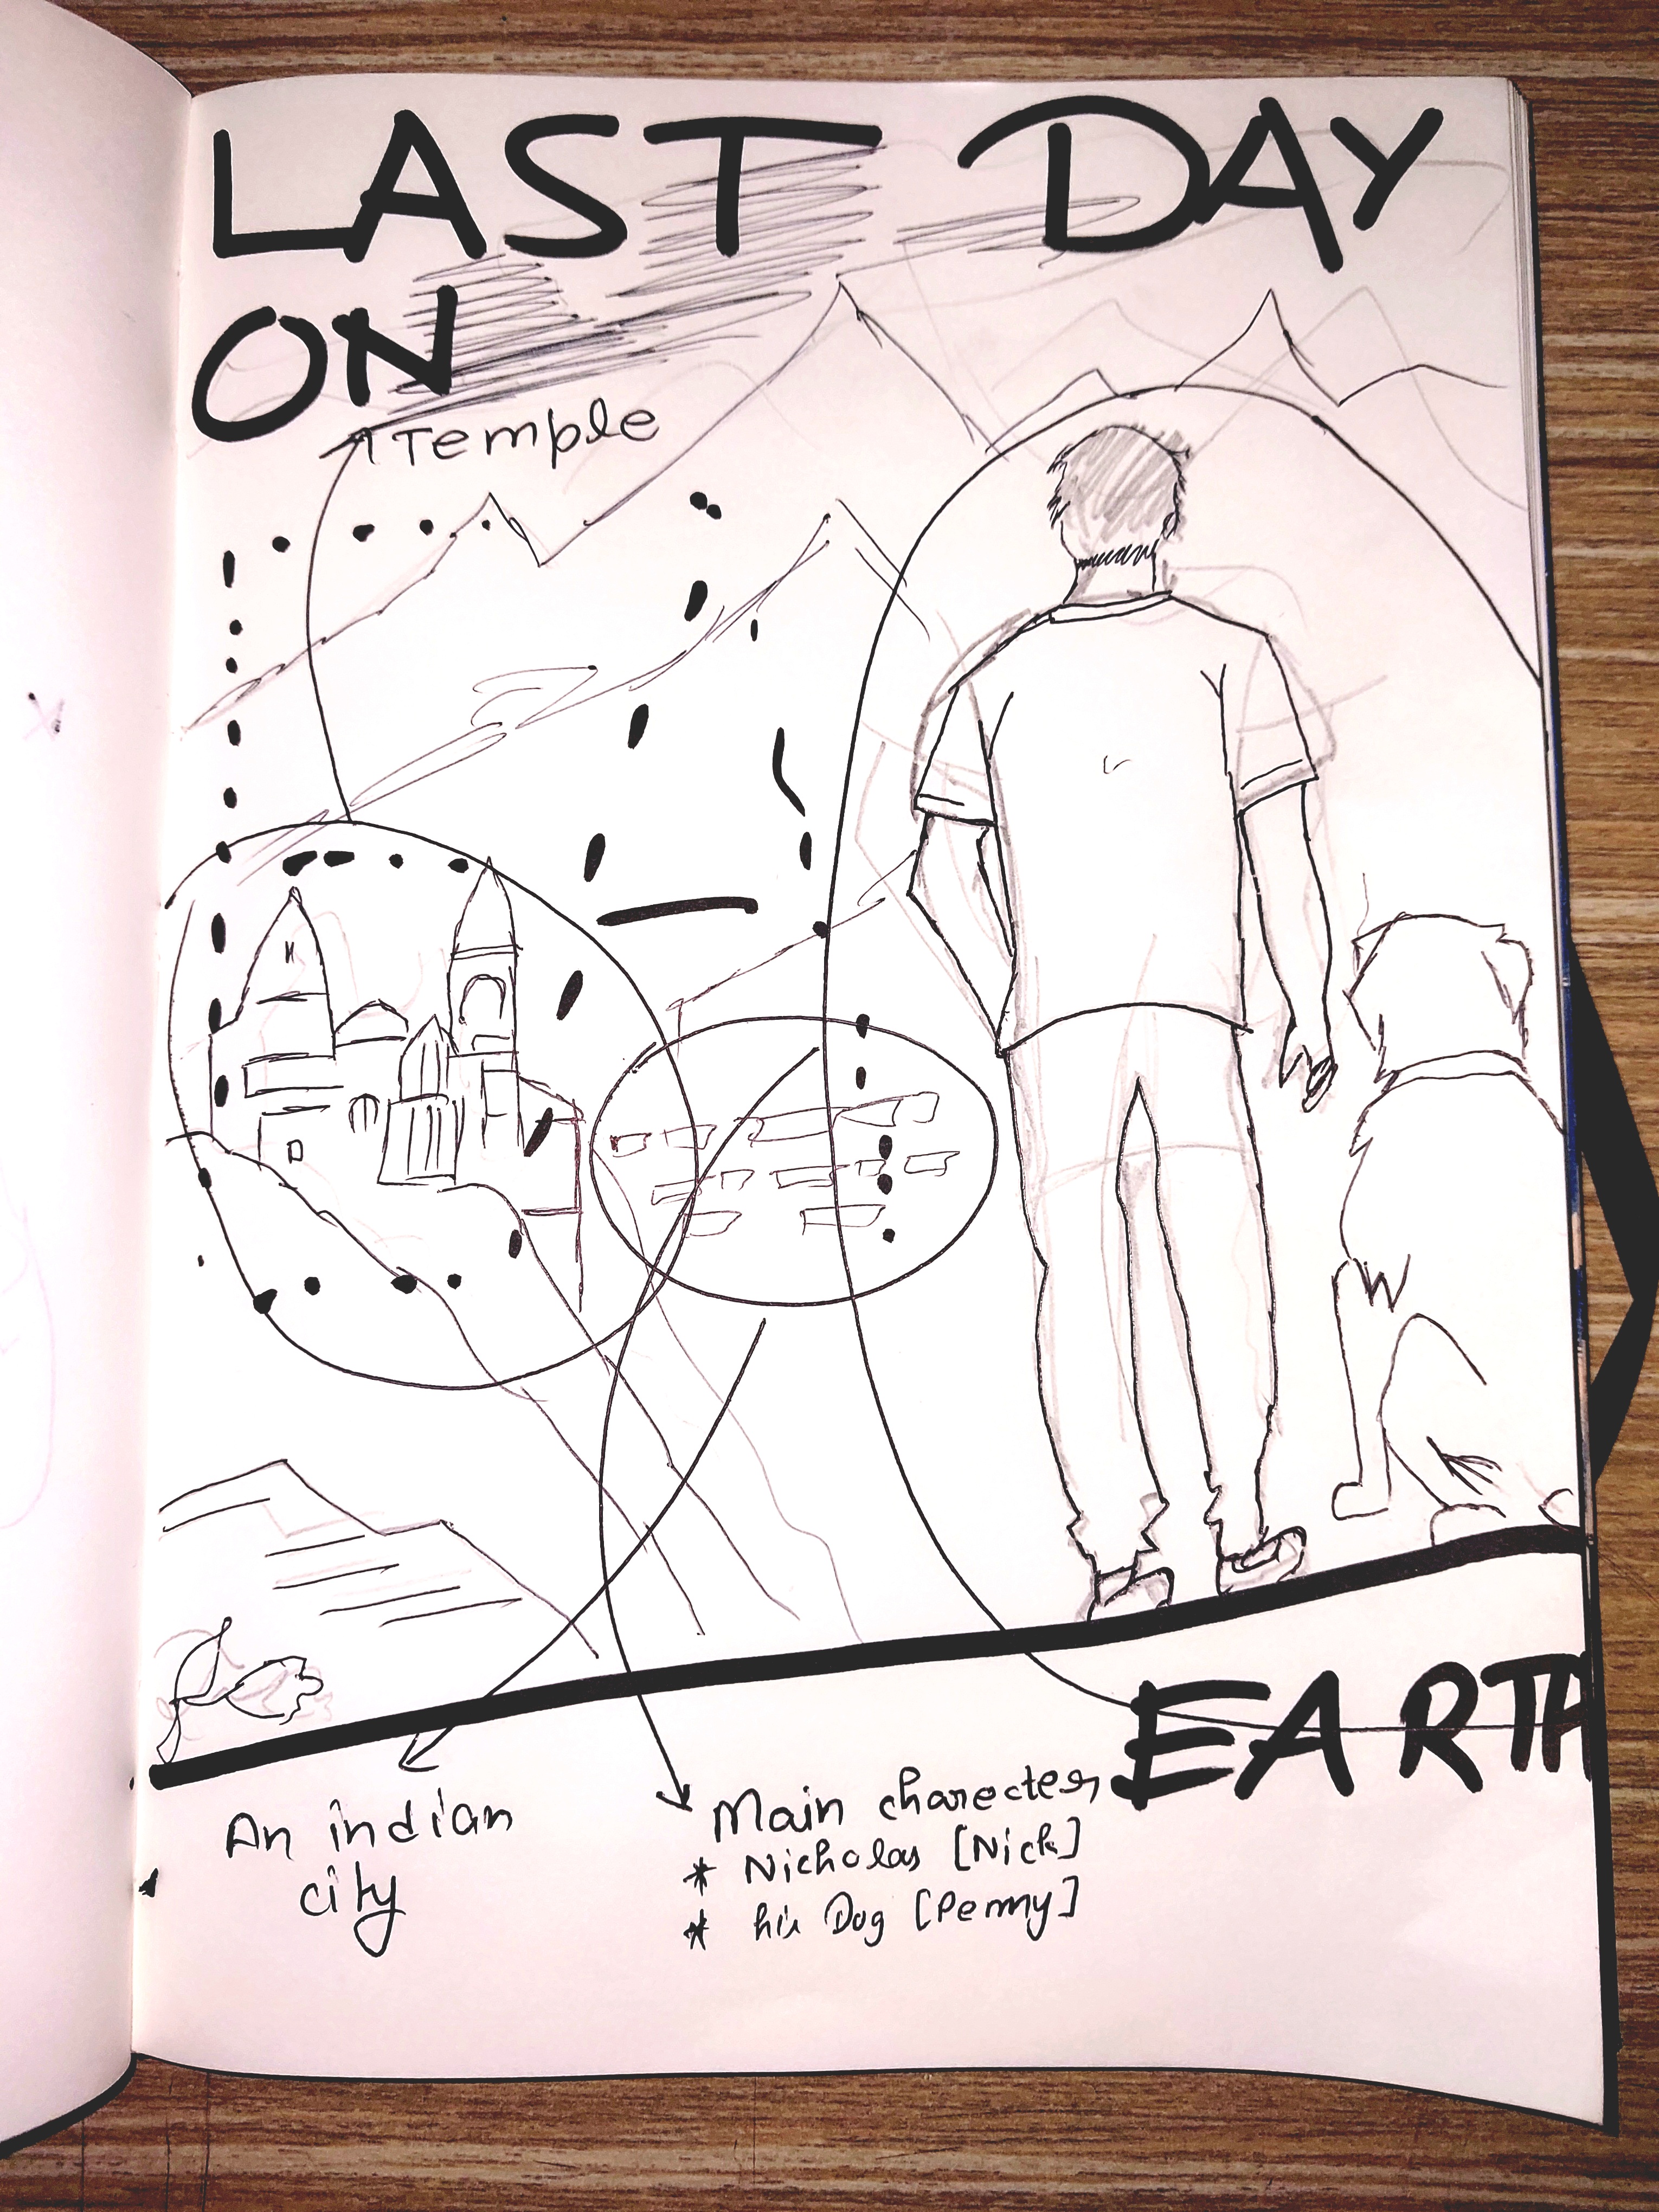 LAST DAY
ON
Temple
EARTH
An indian
city
Main charecter
* Nicholas [Nick]
* his Dog [Penny]